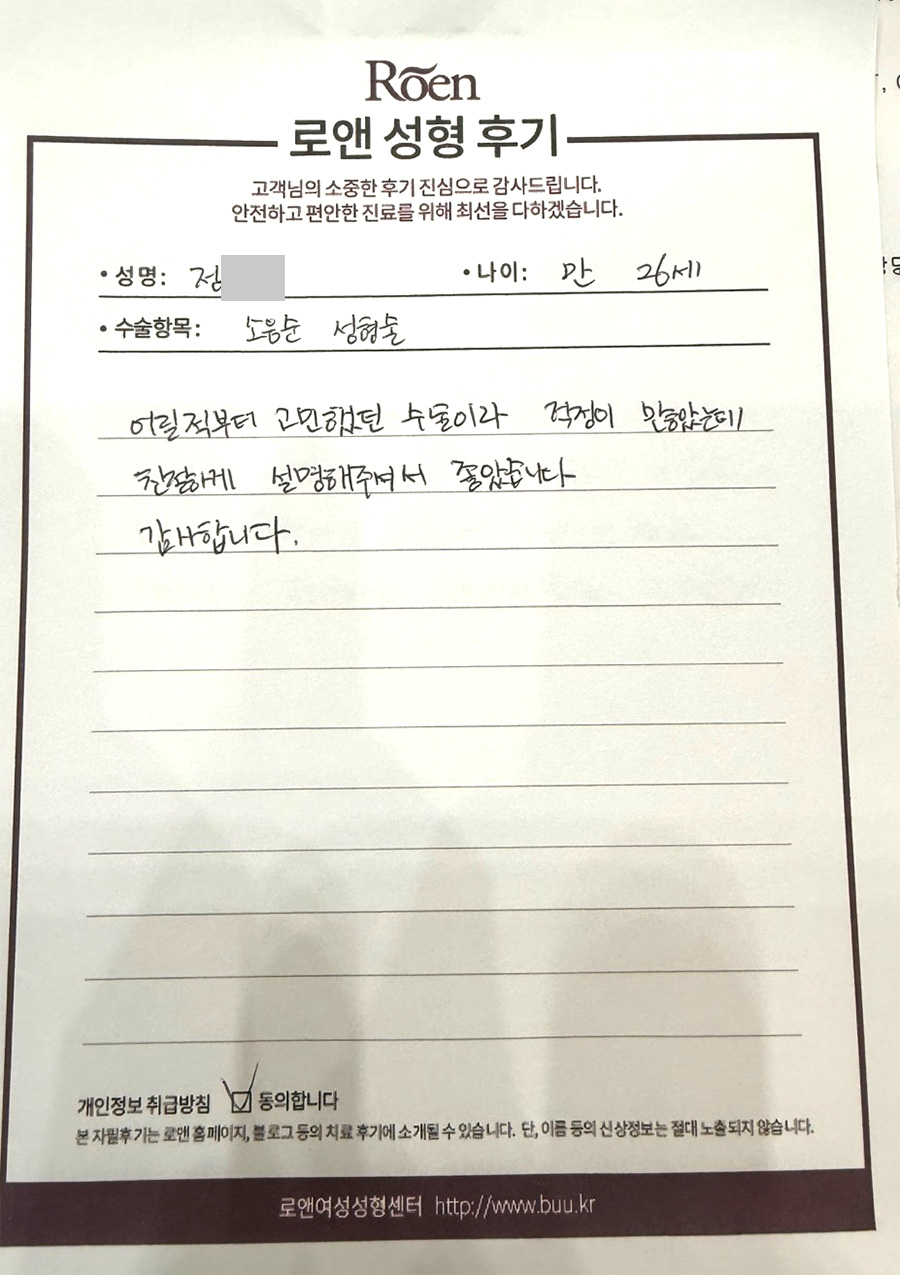 Roen
로앤 성형 후기
고객님의 소중한 후기 진심으로 감사드립니다.
안전하고 편안한 진료를 위해 최선을 다하겠습니다.
• 성명: 정
• 나이: 만 26세
• 수술항목: 소음순 성형술
어릴적부터 고민했었던 수술이라 걱정이 많았는데
친절하게 설명해주셔서 좋았습니다
감사합니다.
개인정보 취급방침 ☑ 동의합니다
본 자필후기는 로앤 홈페이지, 블로그 등의 치료 후기에 소개될 수 있습니다. 단, 이름 등의 신상정보는 절대 노출되지 않습니다.
로앤여성성형센터 http://www.buu.kr